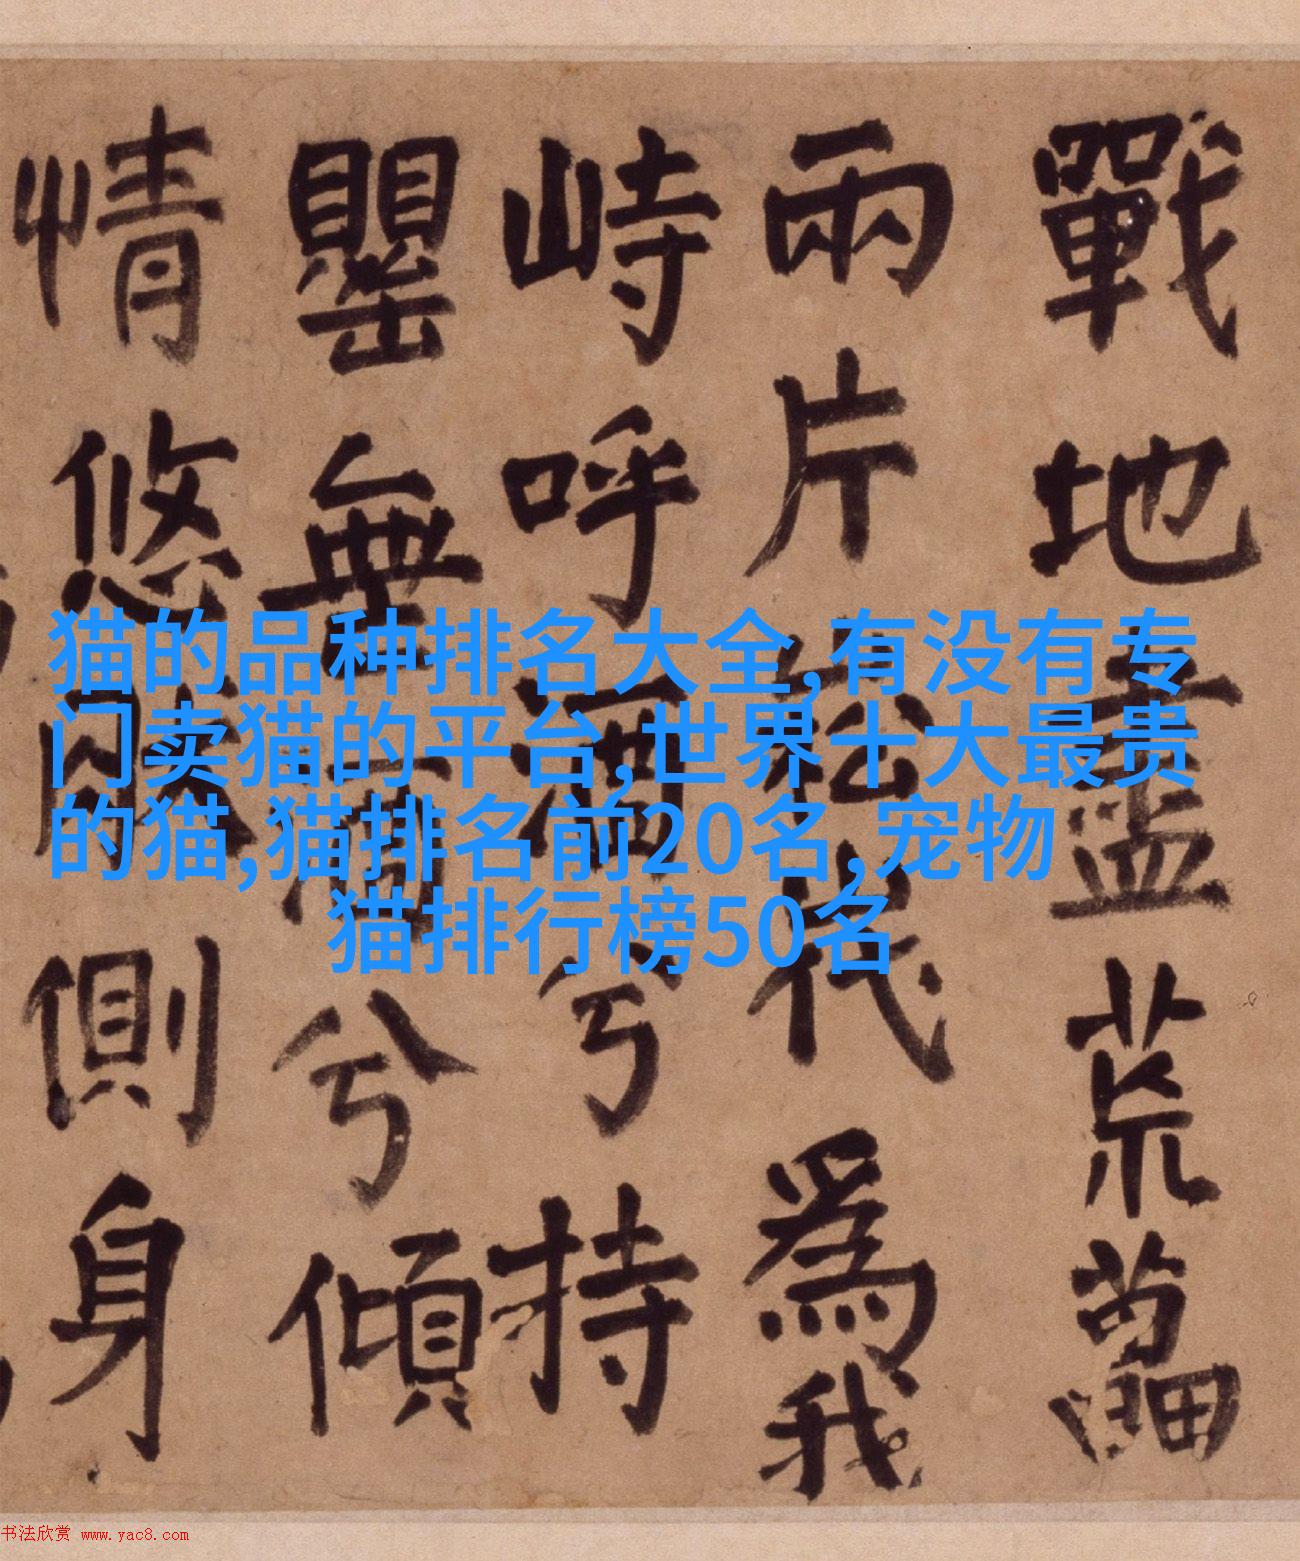 猫的品种排名大全,有没有专
门卖猫的平台,世界十大最贵
的猫,猫排名前20名,宠物
猫排行榜50名
戰地盡荒
兩片代為我
峙呼酒兮持
罌無酒兮傾
情悠側身
书法欣赏 www.yac8.com